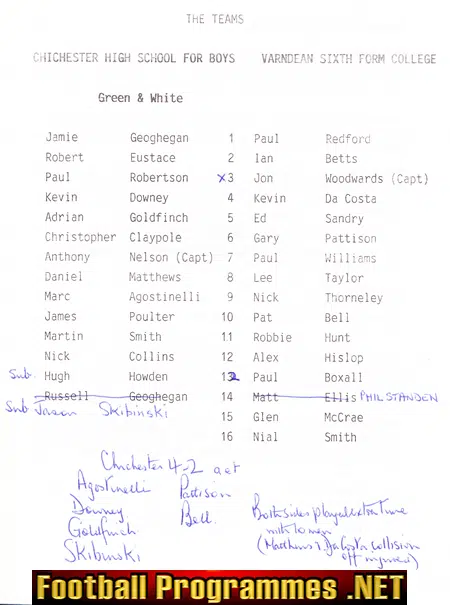 THE TEAMS
CHICHESTER HIGH SCHOOL FOR BOYS VARNDEAN SIXTH FORM COLLEGE
Green & White
Jamie Geoghegan 1 Paul Redford
Robert Eustace 2 Ian Betts
Paul Robertson x3 Jon Woodwards (Capt)
Kevin Downey 4 Kevin Da Costa
Adrian Goldfinch 5 Ed Sandry
Christopher Claypole 6 Gary Pattison
Anthony Nelson (Capt) 7 Paul Williams
Daniel Matthews 8 Lee Taylor
Marc Agostinelli 9 Nick Thorneley
James Poulter 10 Pat Bell
Martin Smith 11 Robbie Hunt
Nick Collins 12 Alex Hislop
Sub. Hugh Howden 132 Paul Boxall
Russell Geoghegan 14 Matt Ellis PHIL STANDEN
Sub Jason Skibinski 15 Glen McCrae
16 Nial Smith
Chichester 4-2 aet
Agostinelli Pattison
Downey Bell.
Goldfinch
Skibinski
Both sides played extra time
with 10 men
(Matthews & Da Costa collision
off injured)
Football Programmes .NET